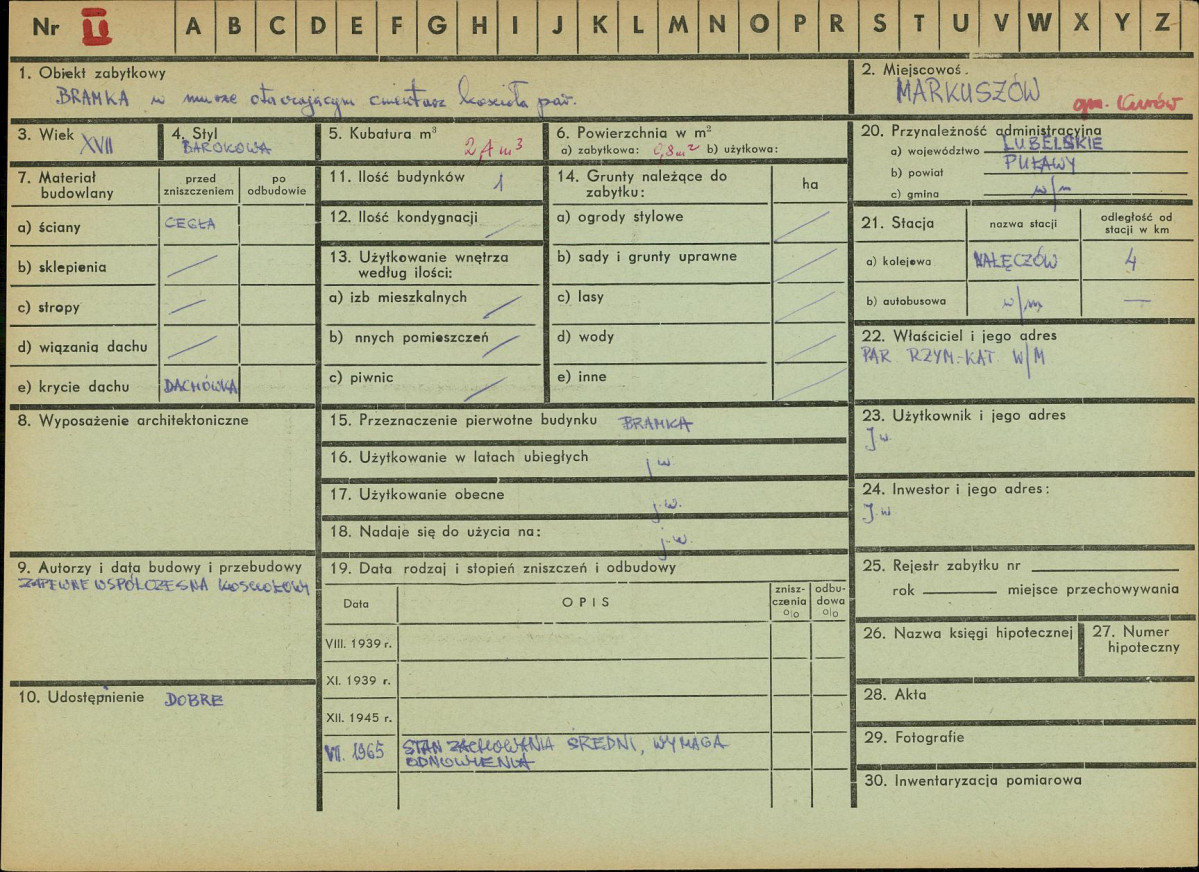 Nr II A B C D E F G H I J K L M N O P R S T U V W X Y Z
1. Obiekt zabytkowy
BRAMKA w murze otaczającym cmentarz kościoła par.
2. Miejscowoś.
MARKUSZÓW
gm. Kurów
3. Wiek XVII
4. Styl
BAROKOWA
5. Kubatura m³
2,4 m³
6. Powierzchnia w m²
a) zabytkowa: 0,8 m² b) użytkowa:
7. Materiał budowlany
przed zniszczeniem
po odbudowie
a) ściany CEGŁA
b) sklepienia
c) stropy
d) wiązania dachu
e) krycie dachu DACHÓWKA
8. Wyposażenie architektoniczne
9. Autorzy i data budowy i przebudowy
ZAPEWNE WSPÓŁCZESNA KOŚCIOŁOWI
10. Udostępnienie DOBRE
11. Ilość budynków 1
12. Ilość kondygnacji
13. Użytkowanie wnętrza
według ilości:
a) izb mieszkalnych
b) nnych pomieszczeń
c) piwnic
14. Grunty należące do
zabytku:
ha
a) ogrody stylowe
b) sady i grunty uprawne
c) lasy
d) wody
e) inne
15. Przeznaczenie pierwotne budynku BRAMKA
16. Użytkowanie w latach ubiegłych j w
17. Użytkowanie obecne j.w.
18. Nadaje się do użycia na: j-w.
19. Data rodzaj i stopień zniszczeń i odbudowy
Data
OPIS
znisz-
czenia
o|o
odbu-
dowa
o|o
VIII. 1939 r.
XI. 1939 r.
XII. 1945 r.
VII. 1965 STAN ZACHOWANIA ŚREDNI, WYMAGA
ODNOWIENIA
20. Przynależność administracyjna
a) województwo LUBELSKIE
b) powiat PUŁAWY
c) gmina w/m
21. Stacja
nazwa stacji
odległość od
stacji w km
a) kolejowa NAŁĘCZÓW 4
b) autobusowa w/m —
22. Właściciel i jego adres
PAR. RZYM.-KAT W/M
23. Użytkownik i jego adres
J w.
24. Inwestor i jego adres:
J. w
25. Rejestr zabytku nr
rok miejsce przechowywania
26. Nazwa księgi hipotecznej
27. Numer
hipoteczny
28. Akta
29. Fotografie
30. Inwentaryzacja pomiarowa